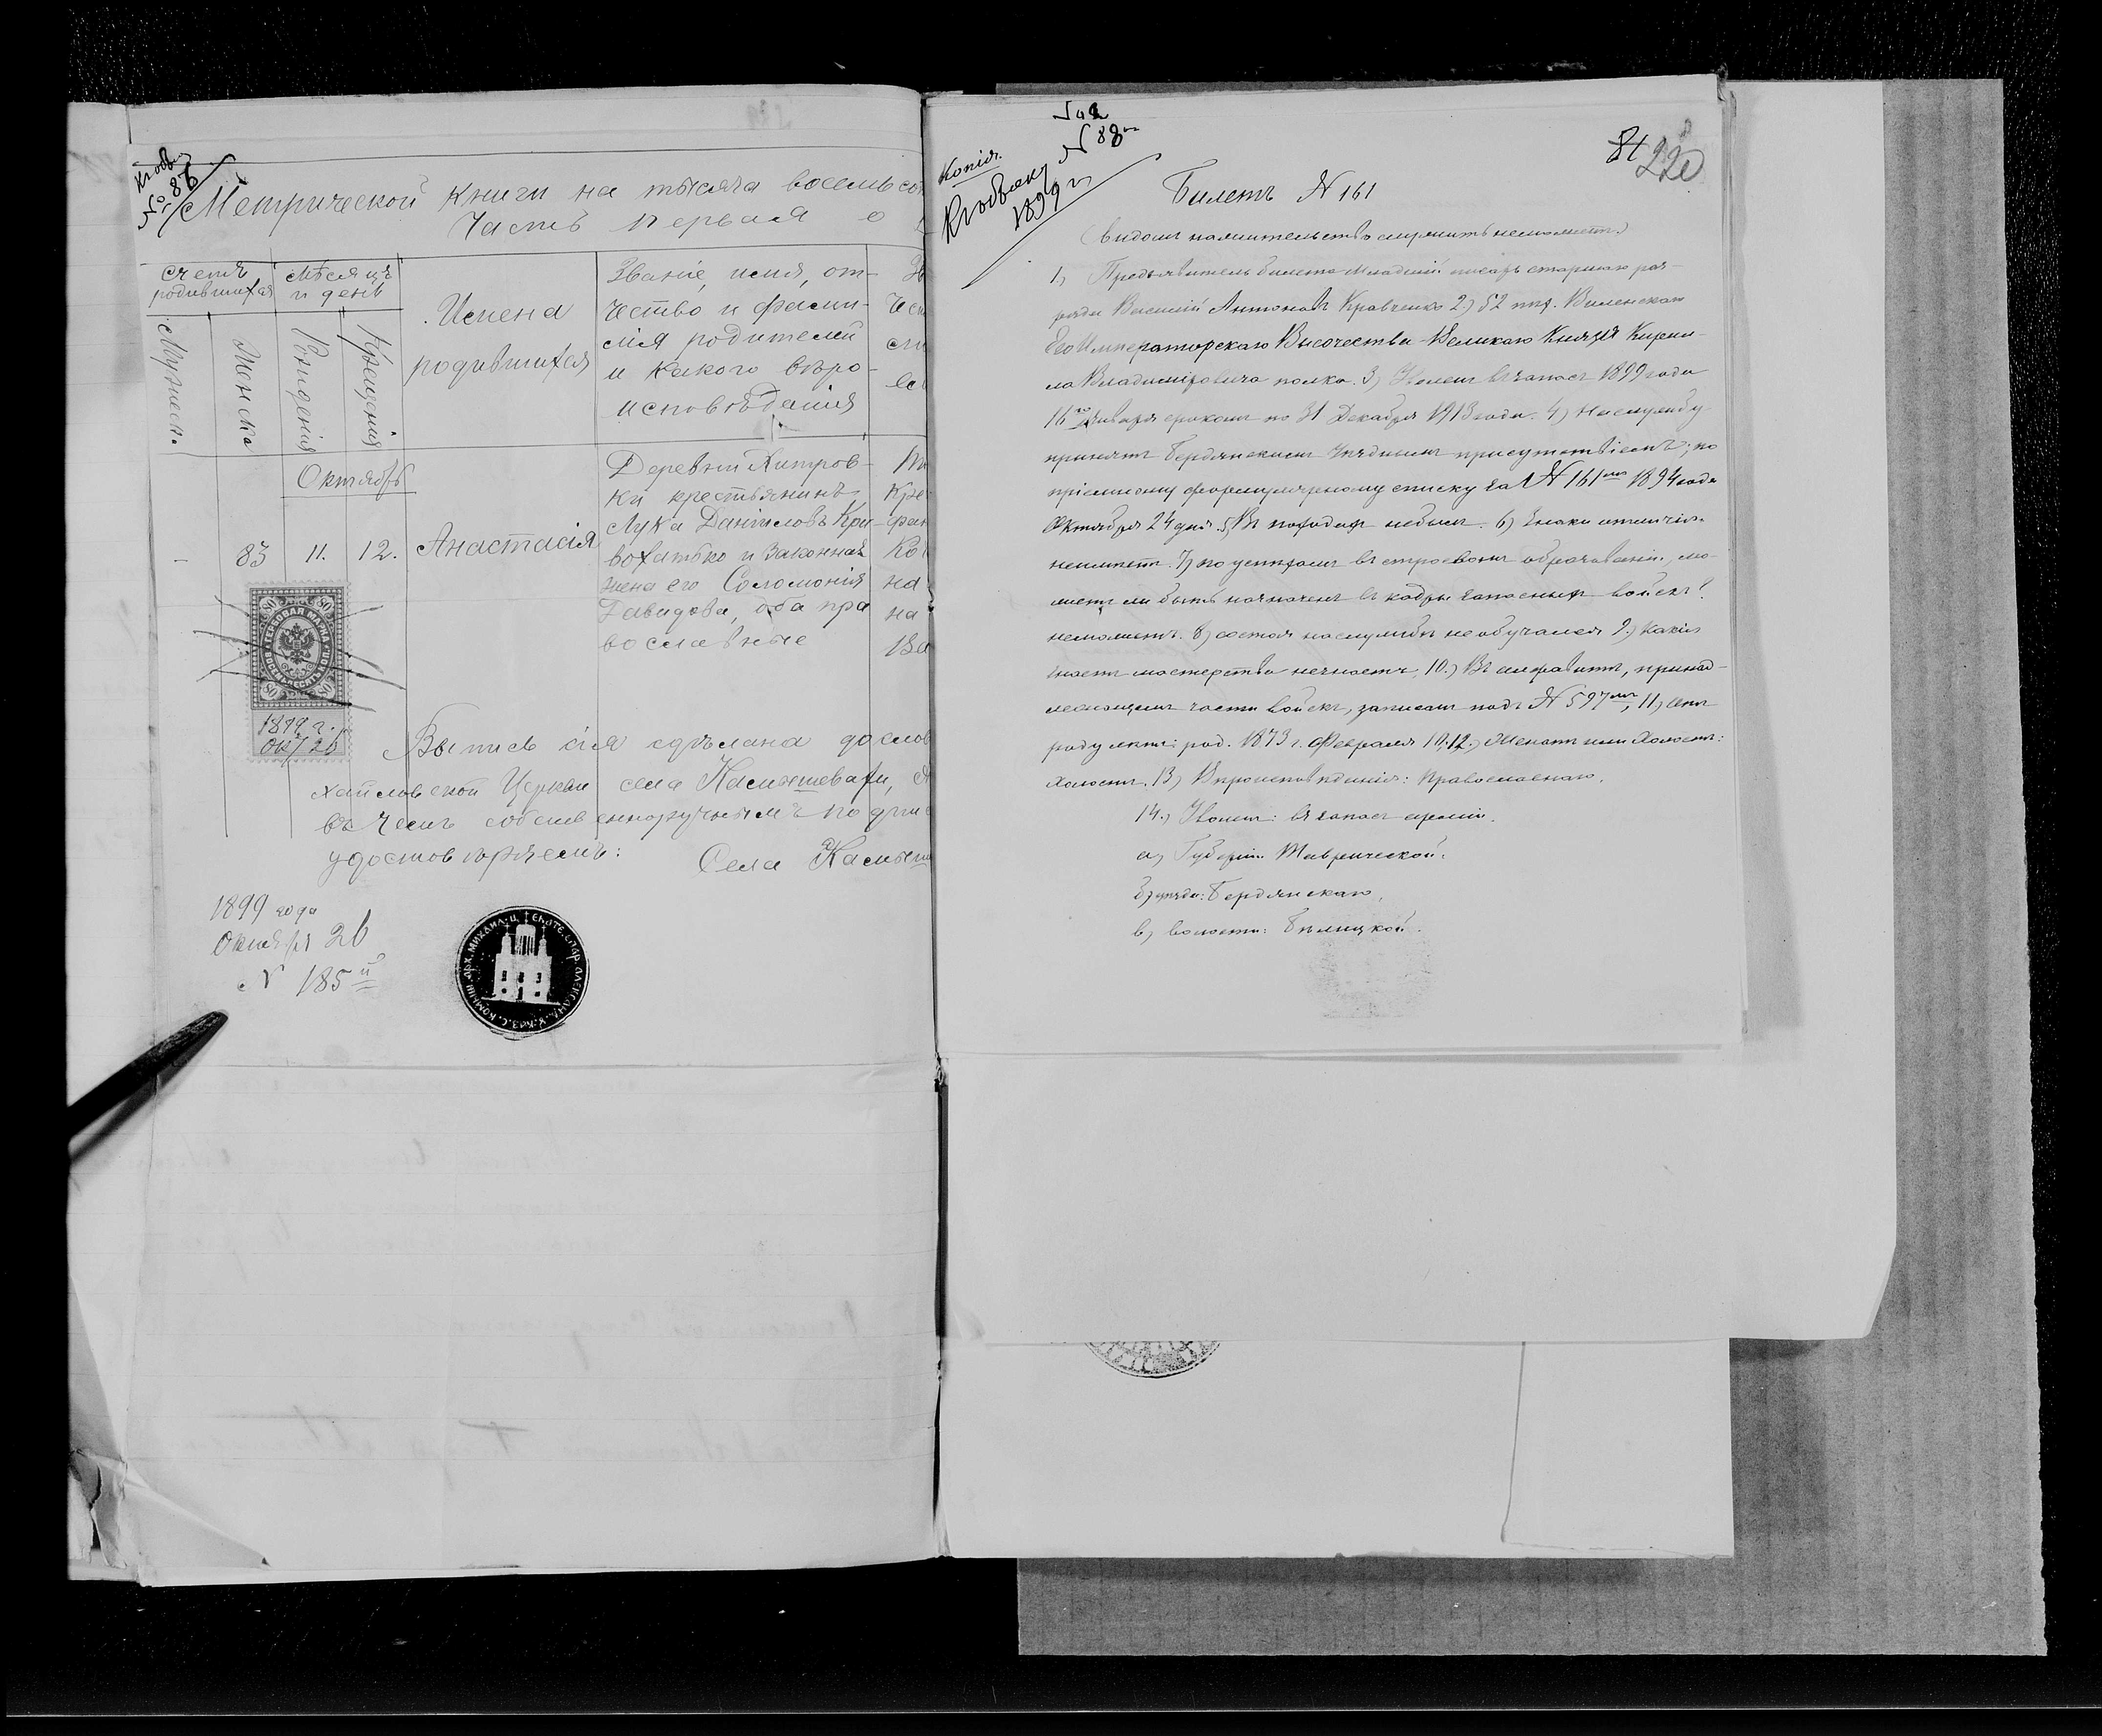 № 87
Метрической книги на тысяча восемьсо
Часть первая о
Счетъ родившихся
Мѣсяцъ и день
Мужеск.
Женска
Рожденія
Крещенія
Имена
родившихся
Званіе, имя, от-
чество и фами-
лія родителей
и какого вѣро-
исповѣданія
Октябрь
Деревни Хитров-
ки крестьянинъ
Лука Даніиловъ Кри-
вохатько и законная
жена его Соломонія
Давидова, оба пра
вославные
83
11.
12.
Анастасія
ГЕРБОВАЯ МАРКА
ВОСЕМЬДЕСЯТЪ КОП.
80
80
80
80
1899 г.
окт 26
Выпись сія сдѣлана дослов
хайловской Церкви села Камышевахи, А
въ чемъ собственноручнымъ подпис
удостовѣряемъ:
Села Камыш
1899 года
Октября 26
№ 185й
Копія.
№ 88
1899 г.
81
220
Билетъ № 161
(видомъ на жительство служить неможетъ)
1) Предъявитель билета Младшій писарь старшаго раз-
ряда Василій Антоновъ Кравченко 2) 52 пѣх. Виленскаго
Его Императорскаго Высочества Великаго Князя Кирил-
ла Владиміровича полка. 3) Уволенъ въ запасъ 1899 года
16го Января срокомъ по 31 Декабря 1913 года. 4) На службу
принятъ Бердянскимъ Уѣзднымъ присутствіемъ; по
пріемному формулярному списку за № 161мъ 1894 года
Октября 24 дня. 5) Въ походахъ небылъ. 6) Знаки отличія
неимѣетъ. 7) по успѣхамъ въ строевомъ образованіи, мо-
жетъ ли быть назначенъ въ кадры запасныхъ войскъ?
неможетъ. 8) состоя на службѣ не обучался 9) Какія
знаетъ мастерства незнаетъ, 10.) Въ алфавитъ, принад-
лежащемъ части войскъ, записанъ подъ № 597мъ, 11) отъ
роду лѣтъ: род. 1873 г. Февраля 10. 12.) Женатъ или Холостъ:
Холостъ. 13) Вѣроисповѣданія: Православнаго.
14.) Уволенъ: въ запасъ арміи.
а) Губерніи Таврической.
б) уѣзда: Бердянскаго.
в) волости: Бѣлицкой.